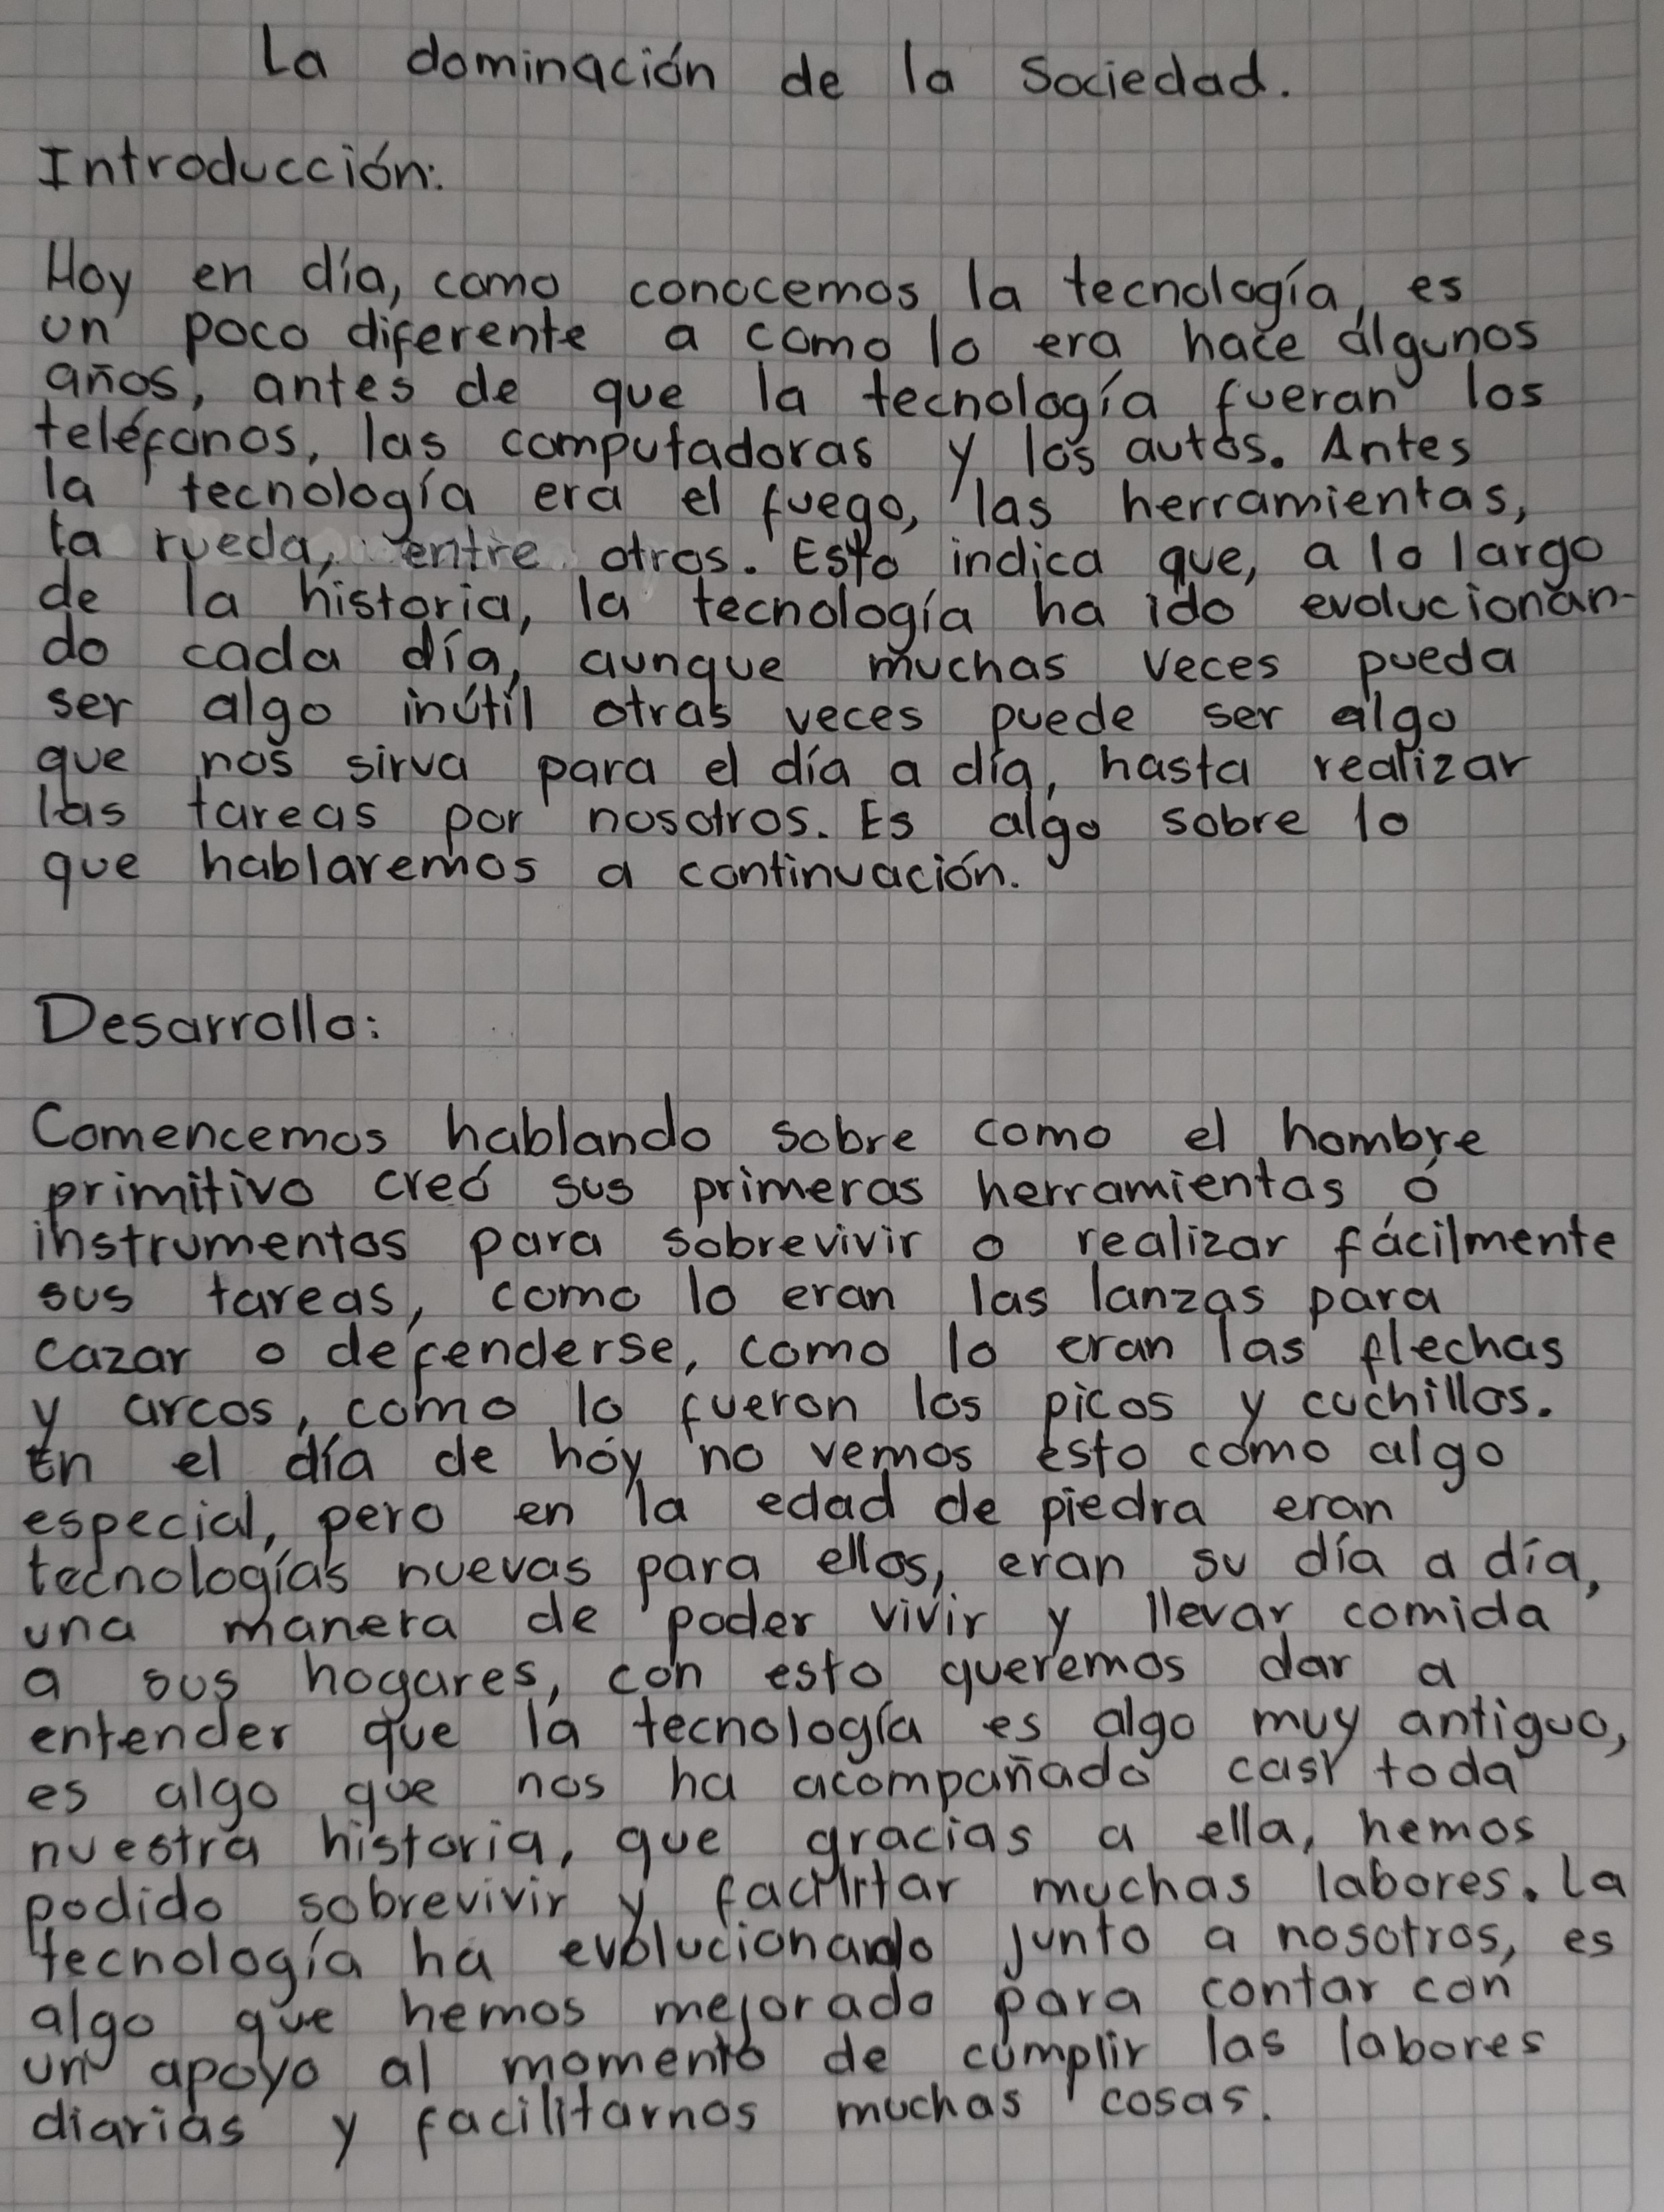 La dominación de la Sociedad.
Introducción:
Hoy en día, como conocemos la tecnología, es
un poco diferente a como lo era hace algunos
años, antes de que la tecnología fueran los
teléfonos, las computadoras y los autos. Antes
la tecnología era el fuego, las herramientas,
la rueda, entre otros. Esto indica que, a lo largo
de la historia, la tecnología ha ido evolucionan-
do cada día, aunque muchas veces pueda
ser algo inútil otras veces puede ser algo
que nos sirva para el día a día, hasta realizar
las tareas por nosotros. Es algo sobre lo
que hablaremos a continuación.
Desarrollo:
Comencemos hablando sobre como el hombre
primitivo creó sus primeras herramientas ó
instrumentos para sobrevivir o realizar fácilmente
sus tareas, como lo eran las lanzas para
cazar o defenderse, como lo eran las flechas
y arcos, como lo fueron los picos y cuchillos.
En el día de hoy no vemos esto como algo
especial, pero en la edad de piedra eran
tecnologías nuevas para ellos, eran su día a día,
una manera de poder vivir y llevar comida
a sus hogares, con esto queremos dar a
entender que la tecnología es algo muy antiguo,
es algo que nos ha acompañado casi toda
nuestra historia, que gracias a ella, hemos
podido sobrevivir y facilitar muchas labores. La
tecnología ha evolucionando junto a nosotros, es
algo que hemos mejorado para contar con
un apoyo al momento de cumplir las labores
diarias y facilitarnos muchas cosas.